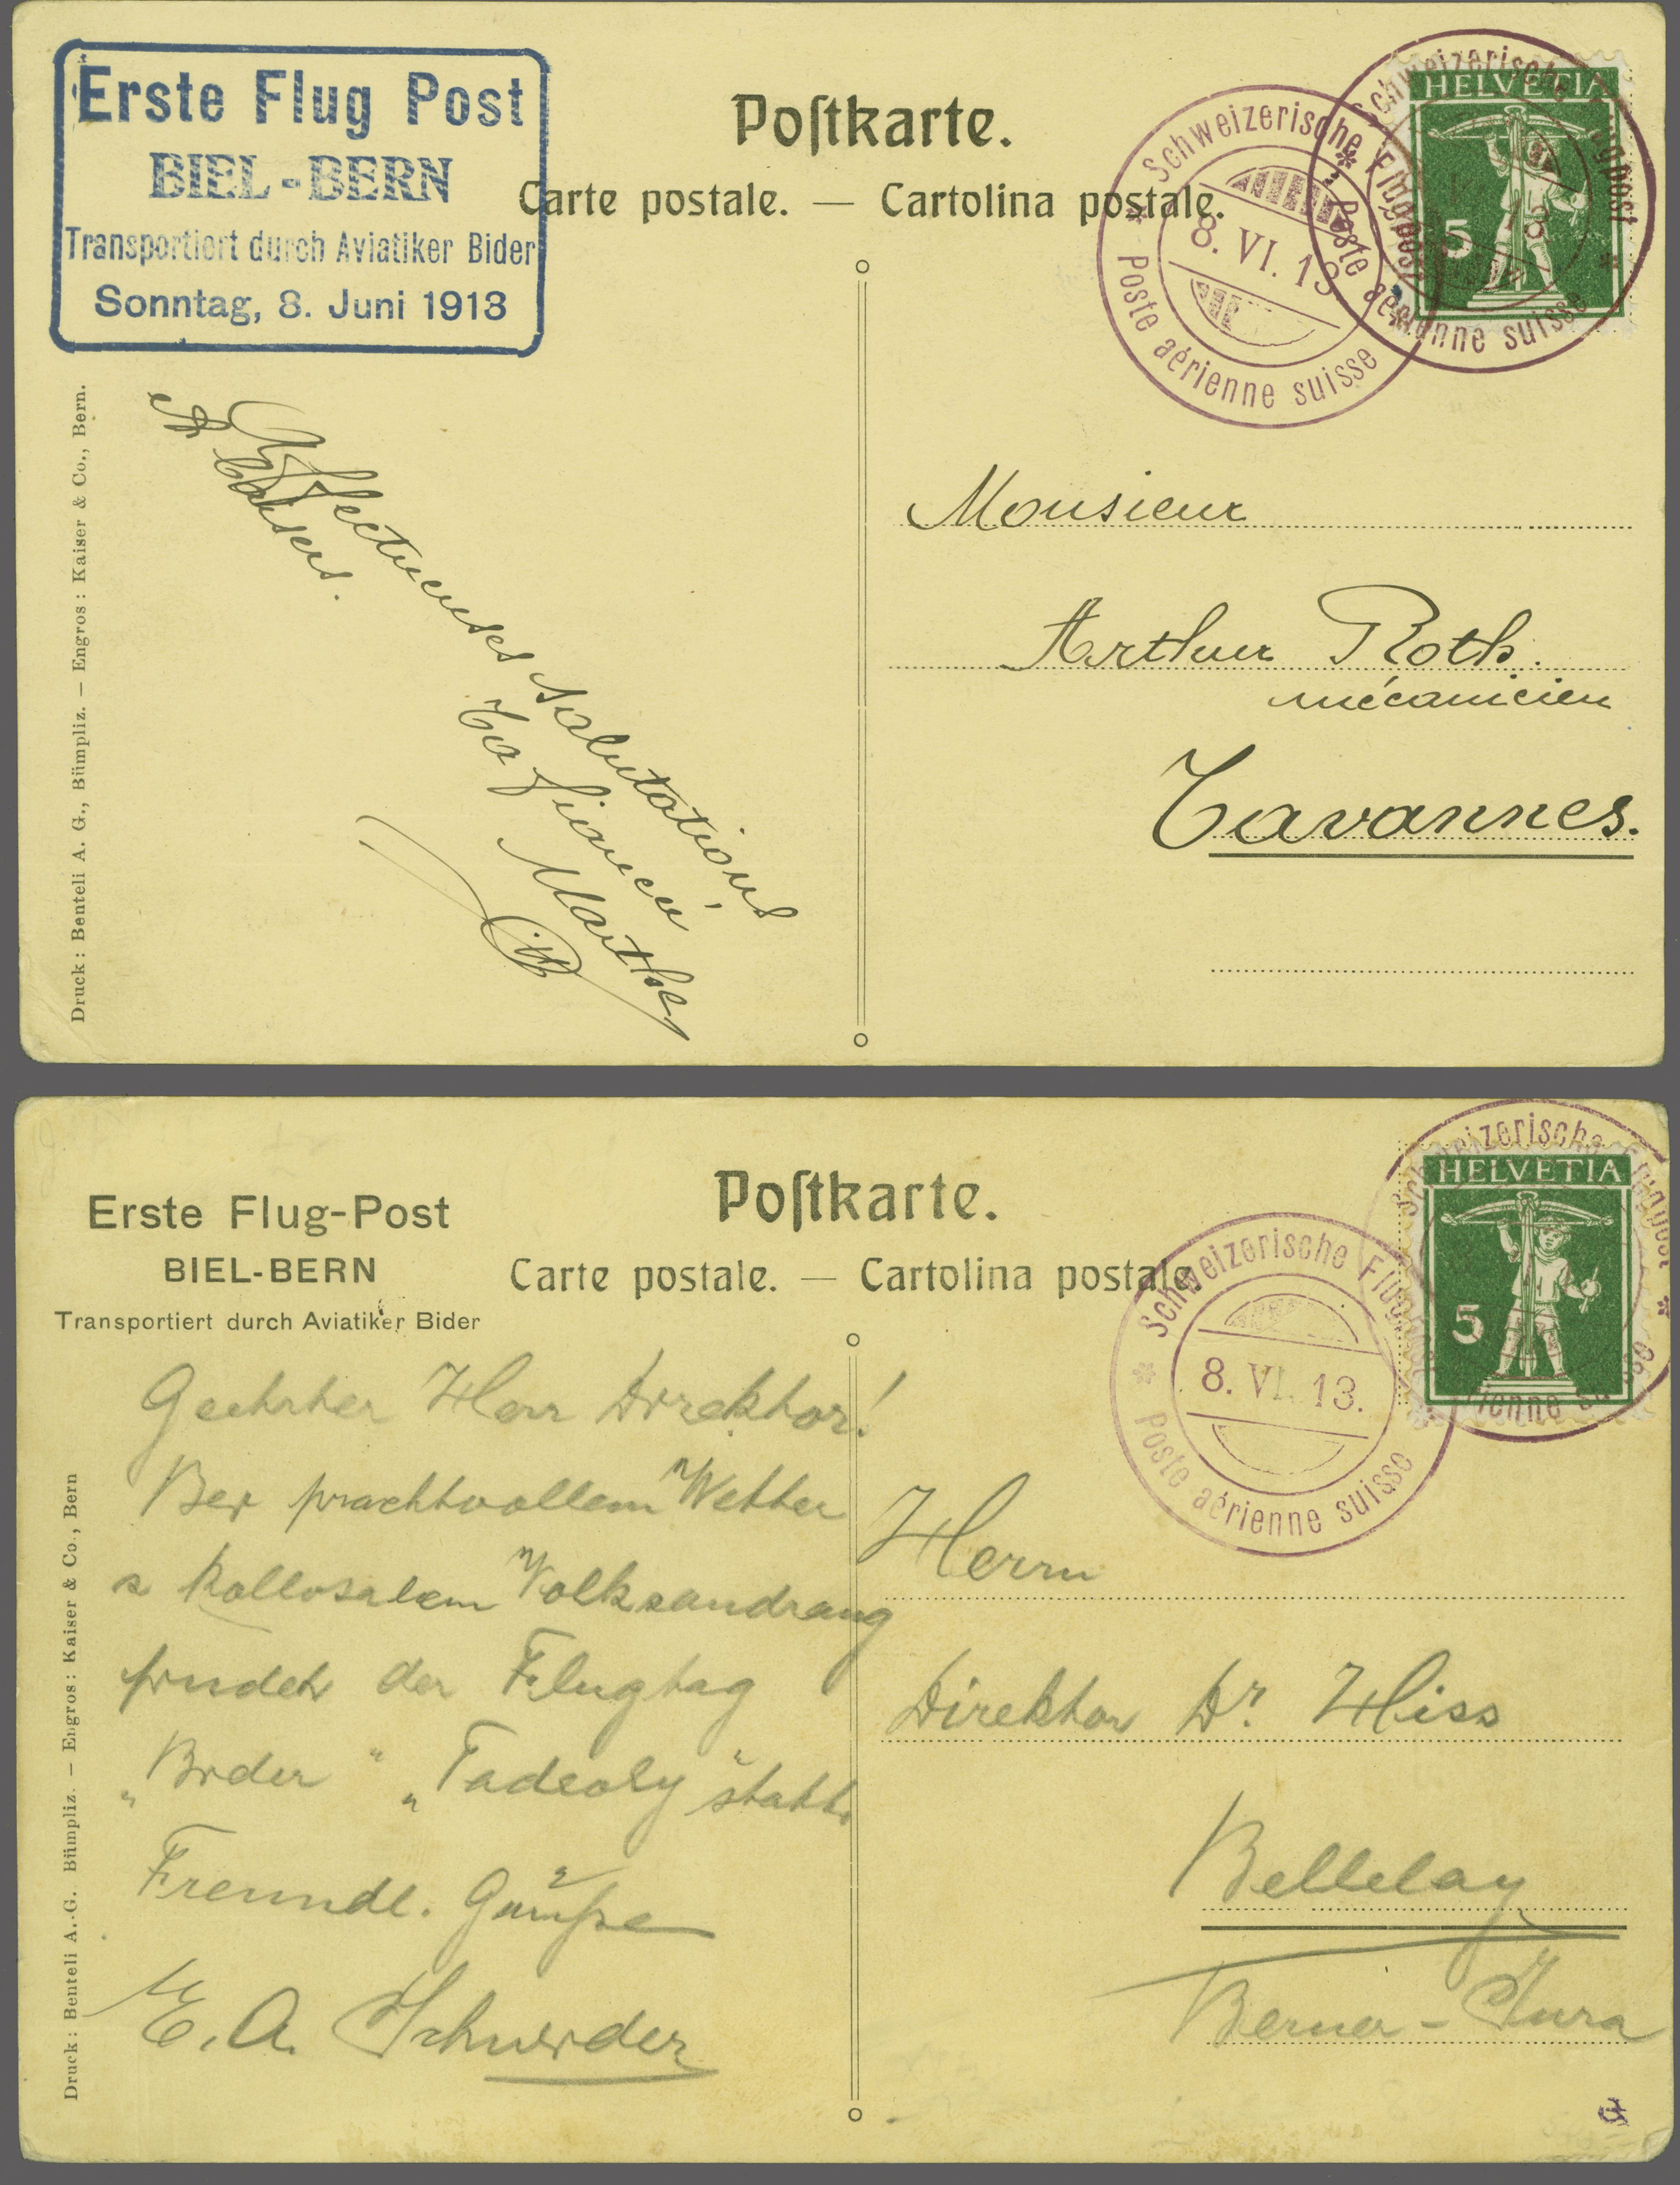 Erste Flug Post
BIEL-BERN
Transportiert durch Aviatiker Bider
Sonntag, 8. Juni 1913
Poſtkarte.
Carte postale. — Cartolina postale.
Schweizerische Flugpost
8. VI. 13
Poste aérienne suisse
Schweizerische Flugpost
13
Poste aérienne suisse
HELVETIA
5
Druck: Benteli A. G., Bümpliz. — Engros: Kaiser & Co., Bern.
Affectueuses salutations
& baisers.
Ta fiancée
Marthe
Monsieur
Arthur Roth.
mécanicien
Tavannes.
Erste Flug-Post
BIEL-BERN
Transportiert durch Aviatiker Bider
Poſtkarte.
Carte postale. — Cartolina postale.
Schweizerische Flugpost
8. VI. 13.
Poste aérienne suisse
Schweizerische Flugpost
HELVETIA
5
Druck: Benteli A.-G. Bümpliz. — Engros: Kaiser & Co., Bern
Geehrter Herr Direktor!
Bei prachtvollem Wetter
& kollosalem Volksandrang
findet der Flugtag
„Bider" „Tadeoly" statt.
Freundl. Grüsse
E. A. Schneider
Herrn
Direktor Dr. Hiss
Bellelay
Berner-Jura